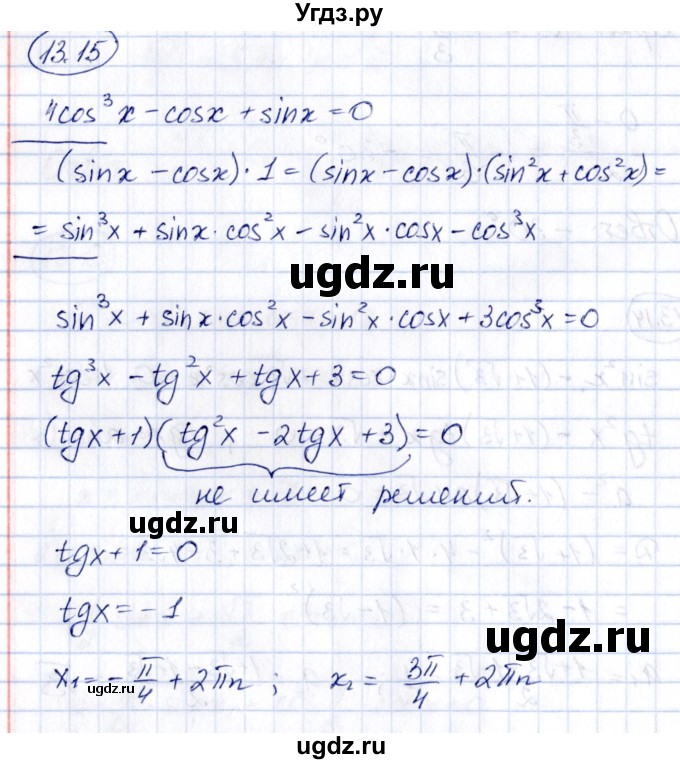 Угдз.ру
13.15
4cos³x - cosx + sinx = 0
(sinx - cosx)·1 = (sinx - cosx)·(sin²x + cos²x) =
= sin³x + sinx·cos²x - sin²x·cosx - cos³x
ugdz.ru
sin³x + sinx·cos²x - sin²x·cosx + 3cos³x = 0
tg³x - tg²x + tgx + 3 = 0
(tgx + 1)(tg²x - 2tgx + 3) = 0
не имеет решений.
ugdz.ru
tgx + 1 = 0
tgx = -1
ugdz.ru
x₁ = -π/4 + 2πn ; x₂ = 3π/4 + 2πn
ugdz.ru
ugdz.ru